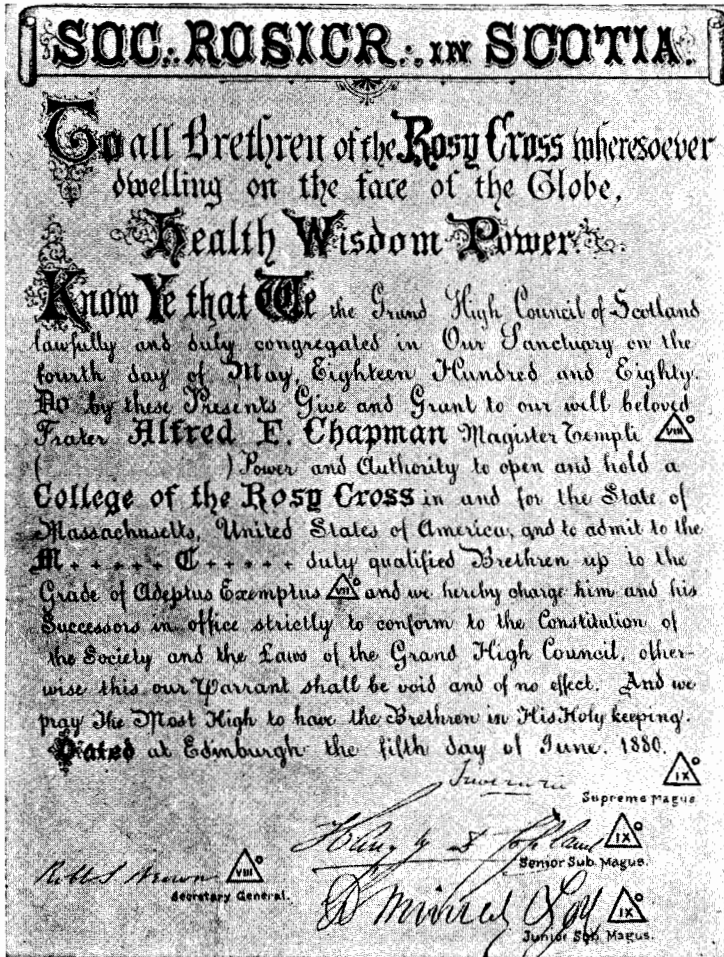 SOC∴ ROSICR∴ IN SCOTIA.
To all Brethren of the Rosy Cross wheresoever
dwelling on the face of the Globe,
Health Wisdom Power.
Know Ye that We the Grand High Council of Scotland
lawfully and duly congregated in Our Sanctuary on the
fourth day of May, Eighteen Hundred and Eighty.
Do by these Presents Give and Grant to our well beloved
Frater Alfred F. Chapman Magister Templi VIII°
( ) Power and Authority to open and hold a
College of the Rosy Cross in and for the State of
Massachusetts, United States of America, and to admit to the
M + + + + + C + + + + + duly qualified Brethren up to the
Grade of Adeptus Exemptus VII° and we hereby charge him and his
Successors in office strictly to conform to the Constitution of
the Society and the Laws of the Grand High Council, other-
wise this our Warrant shall be void and of no effect. And we
pray The Most High to have the Brethren in His Holy keeping.
Dated at Edinburgh the fifth day of June. 1880.
IX°
Supreme Magus
IX°
Senior Sub. Magus.
Robt S Brown VIII°
Secretary General.
IX°
Junior Sub. Magus.